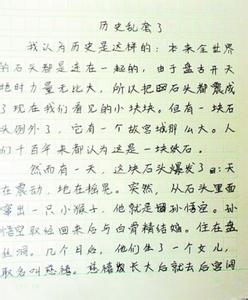 历史乱套了
我认为历史是这样的：本来全世界
的石头都是连在一起的，由于盘古开天
地时力量无比大，所以把石头都震成
了现在我们看见的小块块。但有一块石
头例外了，它有一个故宫城那么大。人
们千百年来都认为这是一块妖石。
然而有一天，这块石头爆发了：天
在震动，地在摇晃。突然，从石头里面
窜出一只小猴子，他就是孙悟空。孙
悟空取经回来后与白骨精结婚。住在盘
丝洞。几个日后，他们生了一个女儿，
取名叫慈禧。慈禧长大后就去后宫间